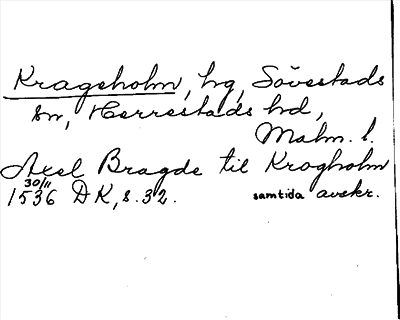 Krageholm, hg, Sövestads
sn, Herrestads hd,
Malm. l.
Axel Bragde til Krogholm
30/11
1536 DK, s. 32. samtida avskr.